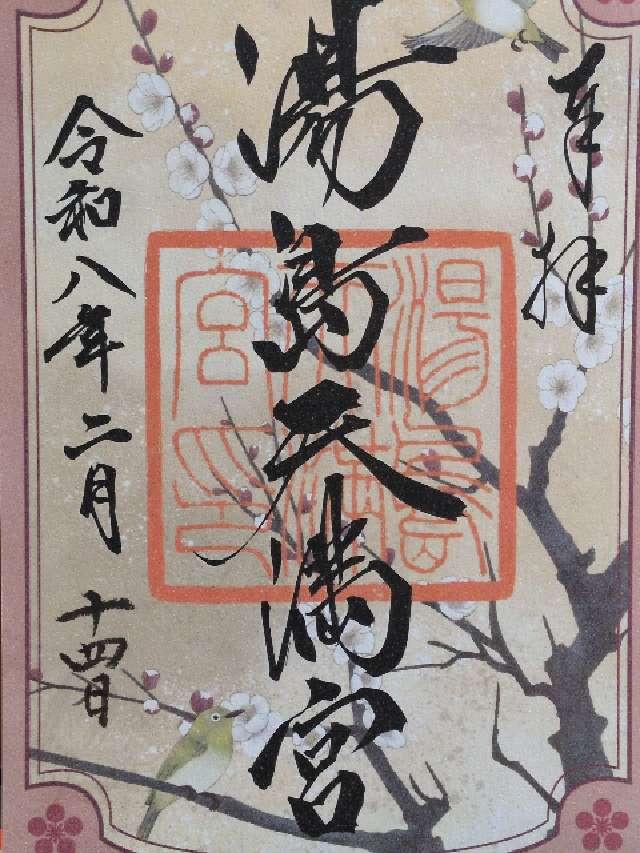 奉拝
湯島天満宮
湯島天満宮印
令和八年二月十四日